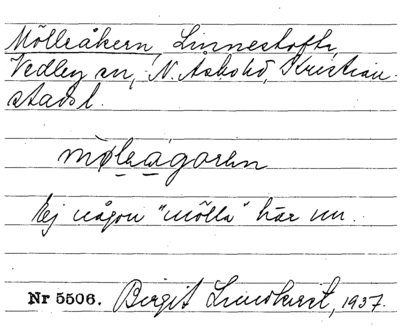 Mölleåkern, Linnestofta,
Vedby sn, N. Åsbohd, Kristian-
stads l.
mø̀lɛágərən
Ej någon "mölla" här nu.
Nr 5506. Birgit Lindkvist, 1937.